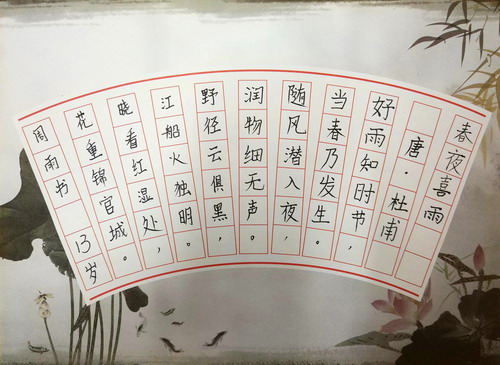 春夜喜雨
唐·杜甫
好雨知时节，
当春乃发生。
随风潜入夜，
润物细无声。
野径云俱黑，
江船火独明。
晓看红湿处，
花重锦官城。
周雨书 13岁